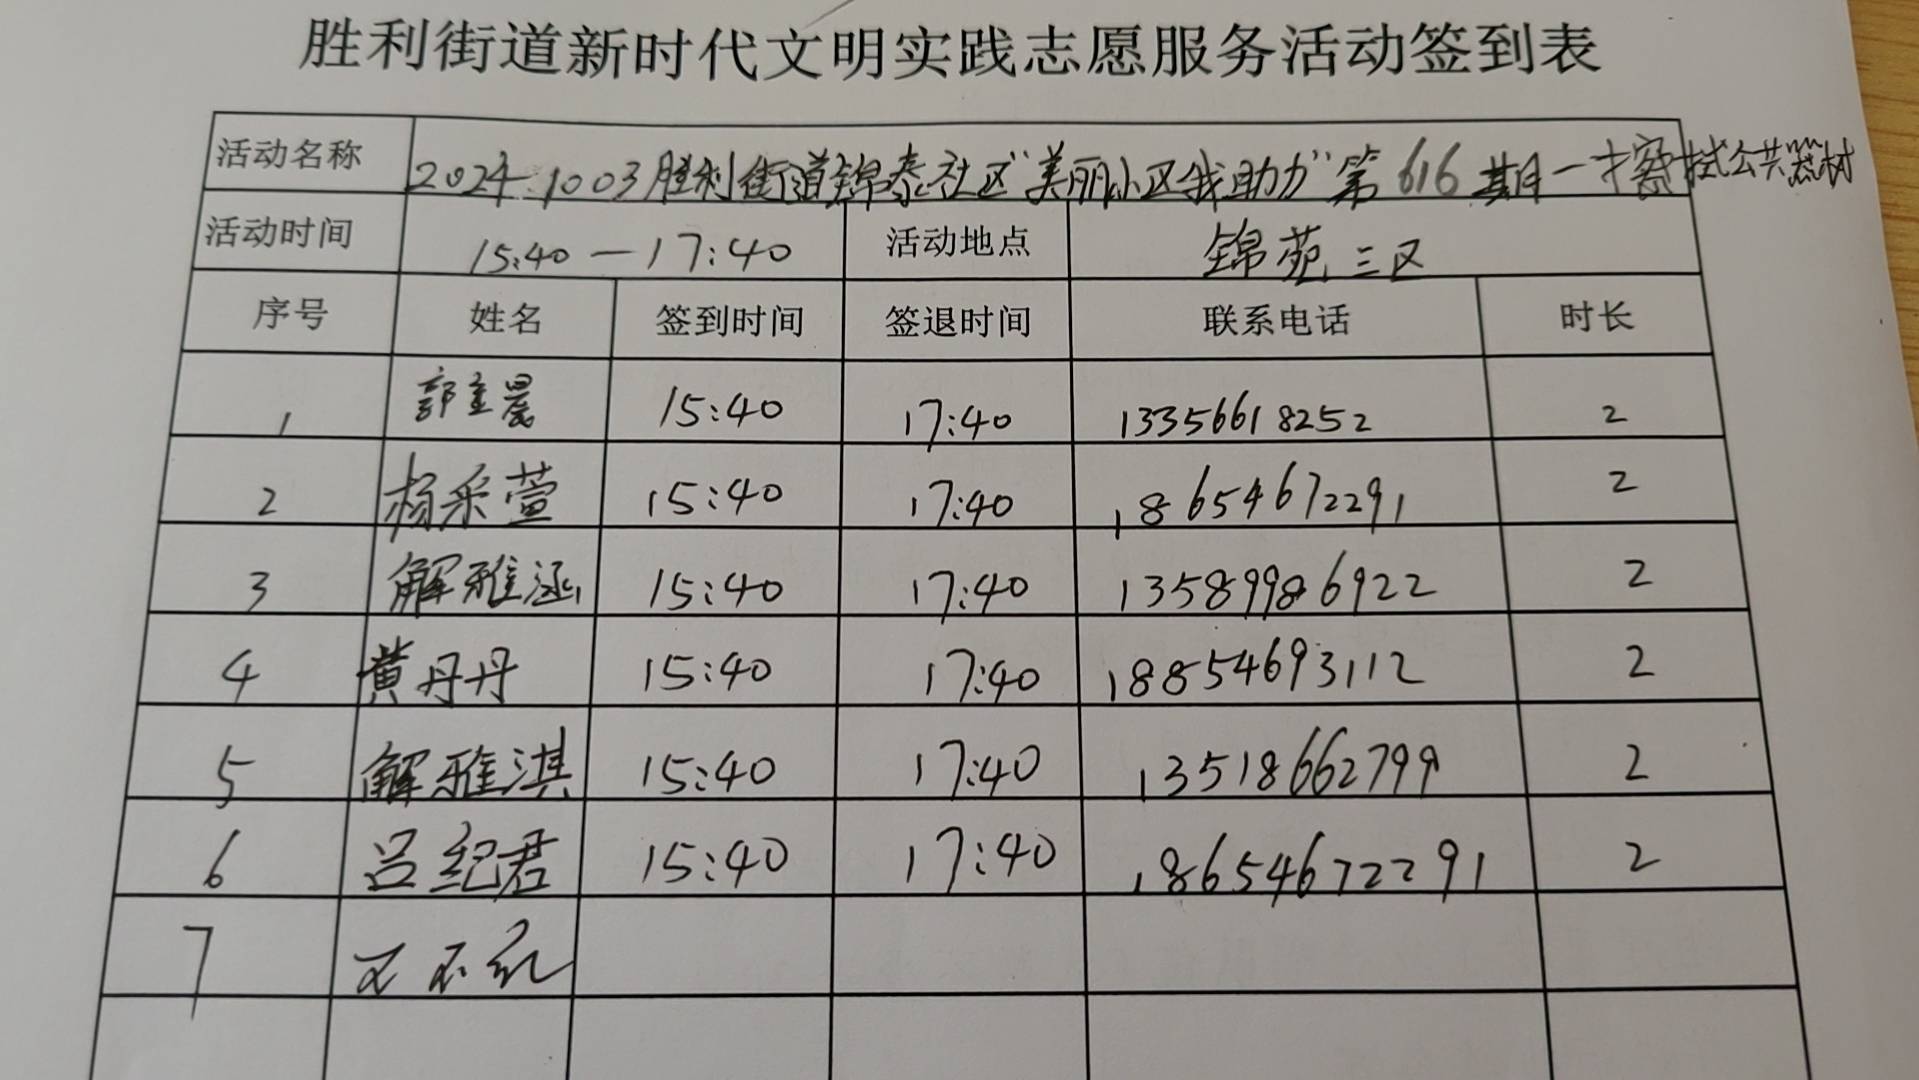 胜利街道新时代文明实践志愿服务活动签到表
活动名称 2024.1003胜利街道锦泰社区"美丽小区我助力"第616期一擦拭公共器材
活动时间 15:40—17:40 活动地点 锦苑三区
序号 姓名 签到时间 签退时间 联系电话 时长
1 15:40 17:40 13356618252 2
2 杨采萱 15:40 17:40 18654672291 2
3 解雅涵 15:40 17:40 13589986922 2
4 黄丹丹 15:40 17:40 18854693112 2
5 解雅淇 15:40 17:40 13518662799 2
6 吕纪君 15:40 17:40 18654672291 2
7